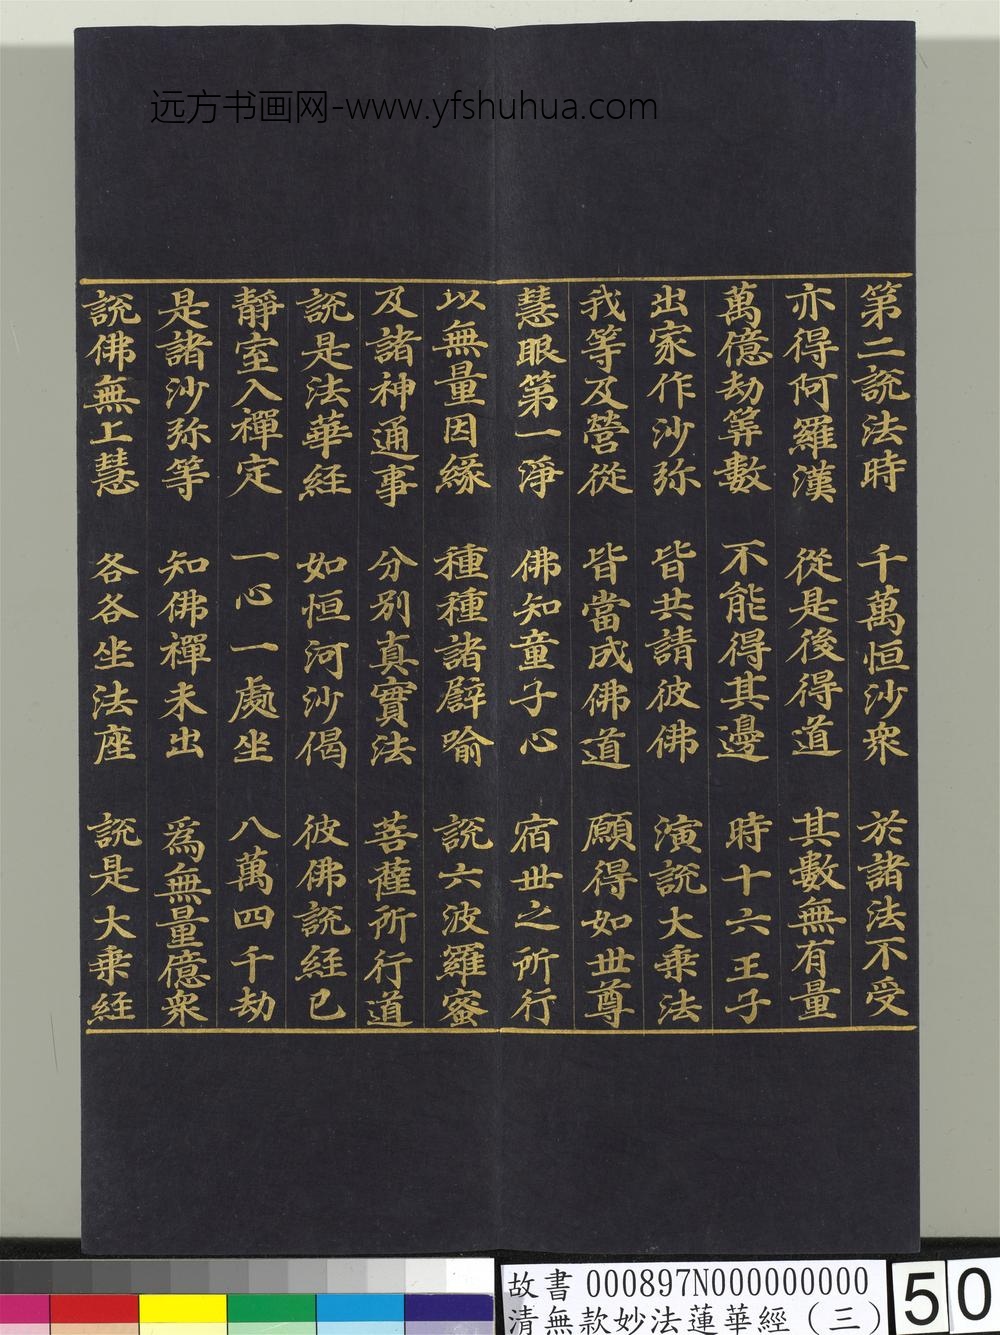 远方书画网-www.yfshuhua.com
第二說法時 千萬恒沙衆 於諸法不受
亦得阿羅漢 從是後得道 其數無有量
萬億劫筭數 不能得其邊 時十六王子
出家作沙弥 皆共請彼佛 演說大乗法
我等及營從 皆當成佛道 願得如世尊
慧眼第一淨 佛知童子心 宿世之所行
以無量因緣 種種諸譬喻 說六波羅蜜
及諸神通事 分別真實法 菩薩所行道
說是法華經 如恒河沙偈 彼佛說經已
靜室入禪定 一心一處坐 八萬四千劫
是諸沙弥等 知佛禪未出 爲無量億衆
說佛無上慧 各各坐法座 說是大乗經
故書 000897N000000000
清無款妙法蓮華經（三）
50